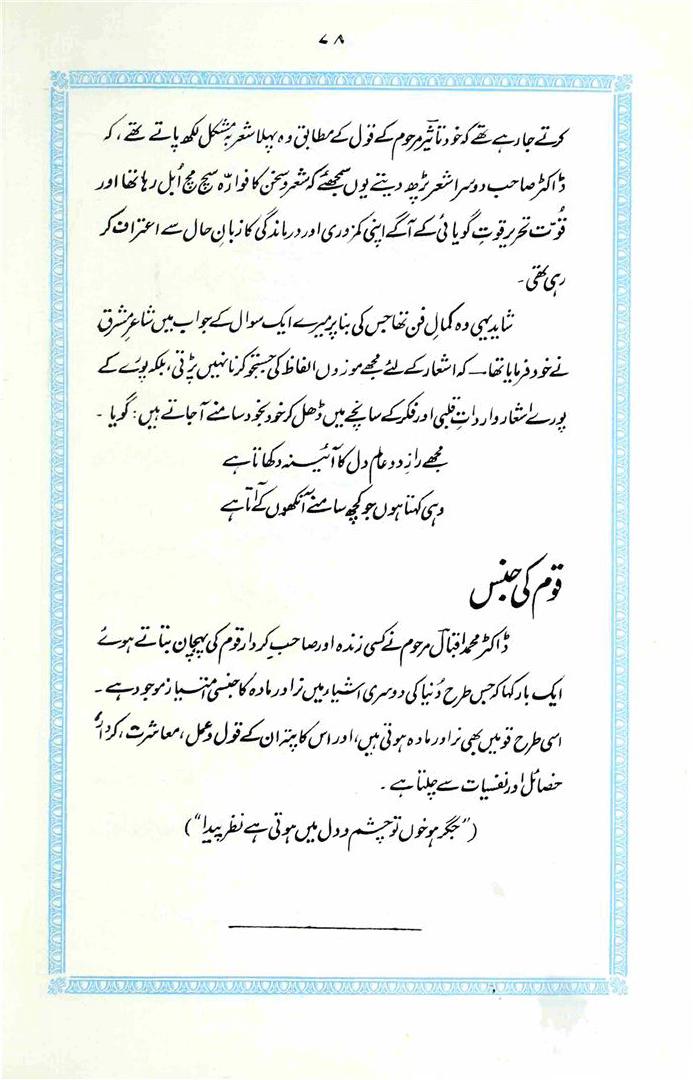 ۷۸
کرتے جا رہے تھے کہ خود تاثیرؔ مرحوم کے قول کے مطابق وہ پہلا شعر بہ مشکل لکھ پاتے تھے، کہ
ڈاکٹر صاحب دوسرا شعر پڑھ دیتے یوں سمجھئے کہ شعر و سخن کا فوارہ سچ مچ اُبل رہا تھا اور
قوّت تحریر قوتِ گویائی کے آگے اپنی کمزوری اور درماندگی کا زبانِ حال سے اعتراف کر
رہی تھی۔
شاید یہی وہ کمالِ فن تھا جس کی بنا پر میرے ایک سوال کے جواب میں شاعرِ مشرق
نے خود فرمایا تھا — کہ اشعار کے لئے مجھے موزوں الفاظ کی جستجو کرنا نہیں پڑتی، بلکہ پورے کے
پورے اشعار وارداتِ قلبی اور فکر کے سانچے میں ڈھل کر خود بخود سامنے آ جاتے ہیں: گویا۔
مجھے رازِ دو عالم دل کا آئینہ دکھاتا ہے
وہی کہتا ہوں جو کچھ سامنے آنکھوں کے آتا ہے
قوم کی جنس
ڈاکٹر محمد اقبالؔ مرحوم نے کسی زندہ اور صاحبِ کردار قوم کی پہچان بتاتے ہوئے
ایک بار کہا کہ جس طرح دُنیا کی دوسری اشیار میں نر اور مادہ کا جنسی امتیاز موجود ہے۔
اسی طرح قومیں بھی نر اور مادہ ہوتی ہیں، اور اس کا پتہ ان کے قول و عمل، معاشرت، کردار
خصائل اور نفسیات سے چلتا ہے۔
(“جگر ہو خوں تو چشم و دل میں ہوتی ہے نظر پیدا”)